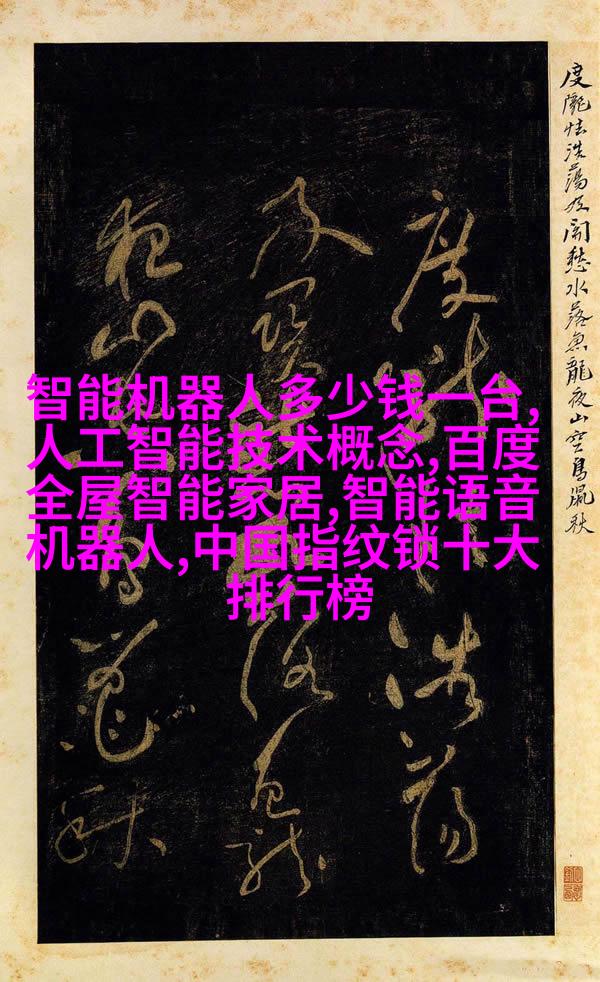 智能机器人多少钱一台,
人工智能技术概念,百度
全屋智能家居,智能语音
机器人,中国指纹锁十大
排行榜
度隴怯浩蕩及関愁水落魚龍夜山空鳥鼠秋
度隴浩蕩
及関落魚龍
夜山鳥鼠秋